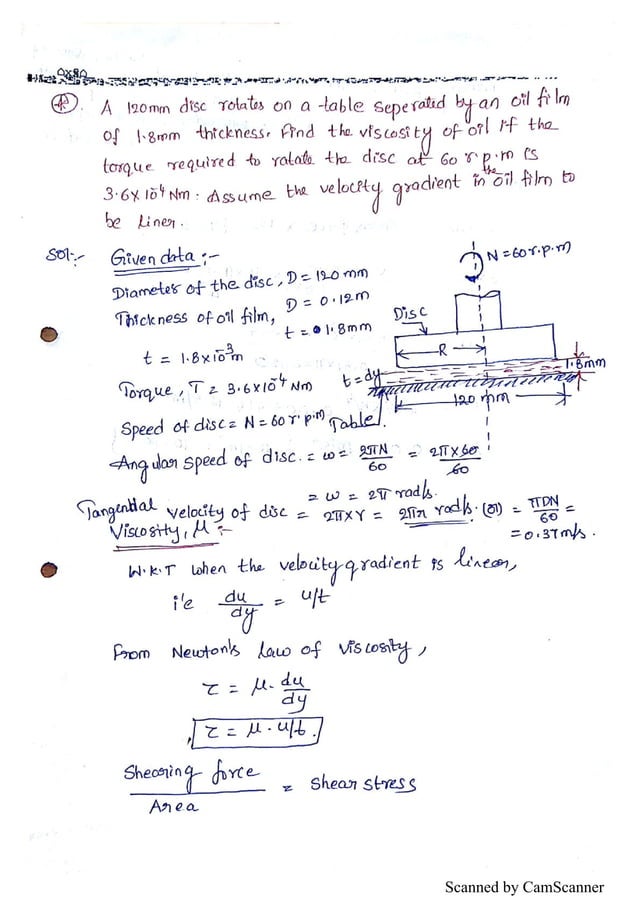 A 120mm disc rotates on a table seperated by an oil film
of 1.8mm thickness. Find the viscosity of oil if the
torque required to rotate the disc at 60 r.p.m is
3.6×10⁻⁴ Nm. Assume the velocity gradient in the oil film to
be liner.
Sol:-
Given data :-
Diameter of the disc, D = 120 mm
D = 0.12m
Thickness of oil film,
t = 1.8mm
t = 1.8×10⁻³m
Torque, T = 3.6×10⁻⁴ Nm
Speed of disc = N = 60 r.p.m
N = 60 r.p.m
Disc
R
1.8mm
t = dy
120 mm
Table
Angular speed of disc = ω = 2πN/60 = 2π×60/60
= ω = 2π rad/s.
Tangential velocity of disc = 2π×r = 2πr rad/s. (or) = πDN/60 =
= 0.37m/s.
Viscosity, μ :-
W.K.T when the velocity gradient is linear,
i'e du/dy = u/t
From Newton's law of viscosity,
τ = μ. du/dy
τ = μ. u/t.
Shearing force/Area = Shear stress
Scanned by CamScanner